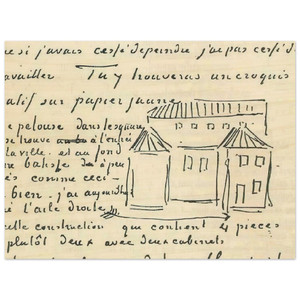 si j'avais cessé de peindre j'ai pas cessé d
travailler Tu y trouveras un croquis
atif sur papier jaune
e pelouse dans le square
se trouve à l'entrée
la ville. et au fond
ne batisse à peu
ès comme ceci —
bien. j'ai aujourdhui
é l'aile droite
elle construction qui contient 4 pieces
plutôt deux avec deux cabinets